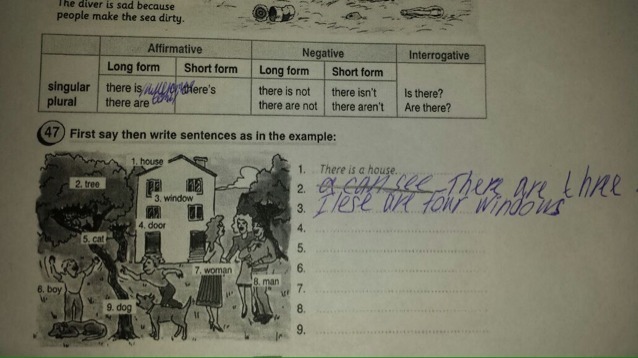 The diver is sad because
people make the sea dirty.
Affirmative Negative Interrogative
Long form Short form Long form Short form
singular there is there's there is not there isn't Is there?
plural there are there are not there aren't Are there?
47 First say then write sentences as in the example:
1. house
2. tree
3. window
4. door
5. cat
6. boy
7. woman
8. man
9. dog
1. There is a house.
2. There are three
3. These are four windows
4.
5.
6.
7.
8.
9.